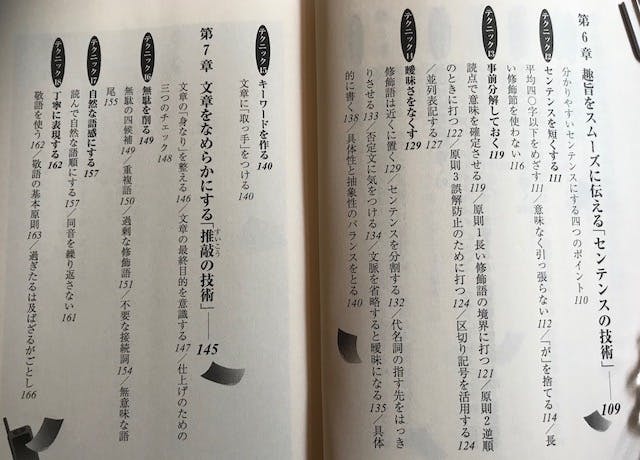 第6章 趣旨をスムーズに伝える「センテンスの技術」——109
分かりやすいセンテンスにする四つのポイント 110
テクニック12 センテンスを短くする 111
平均四〇字以下をめざす 111/意味なく引っ張らない 112/「が」を捨てる 114/長
い修飾節を使わない 116
テクニック13 事前分解しておく 119
読点で意味を確定させる 119/原則1長い修飾語の境界に打つ 121/原則2逆順
のときに打つ 122/原則3誤解防止のために打つ 124/区切り記号を活用する 124
/並列表記する 127
テクニック14 曖昧さをなくす 129
修飾語は近くに置く 129/センテンスを分割する 132/代名詞の指す先をはっき
りさせる 133/否定文に気をつける 134/文脈を省略すると曖昧になる 135/具体
的に書く 138/具体性と抽象性のバランスをとる 140
テクニック15 キーワードを作る 140
文章に「取っ手」をつける 140
第7章 文章をなめらかにする「推敲の技術」——145
すいこう
文章の「身なり」を整える 146/文章の最終目的を意識する 147/仕上げのための
三つのチェック 148
テクニック16 無駄を削る 149
無駄の四候補 149/重複語 150/過剰な修飾語 151/不要な接続詞 154/無意味な語
尾 155
テクニック17 自然な語感にする 157
読んで自然な語順にする 157/同音を繰り返さない 161
テクニック18 丁寧に表現する 162
敬語を使う 162/敬語の基本原則 163/過ぎたるは及ばざるがごとし 166